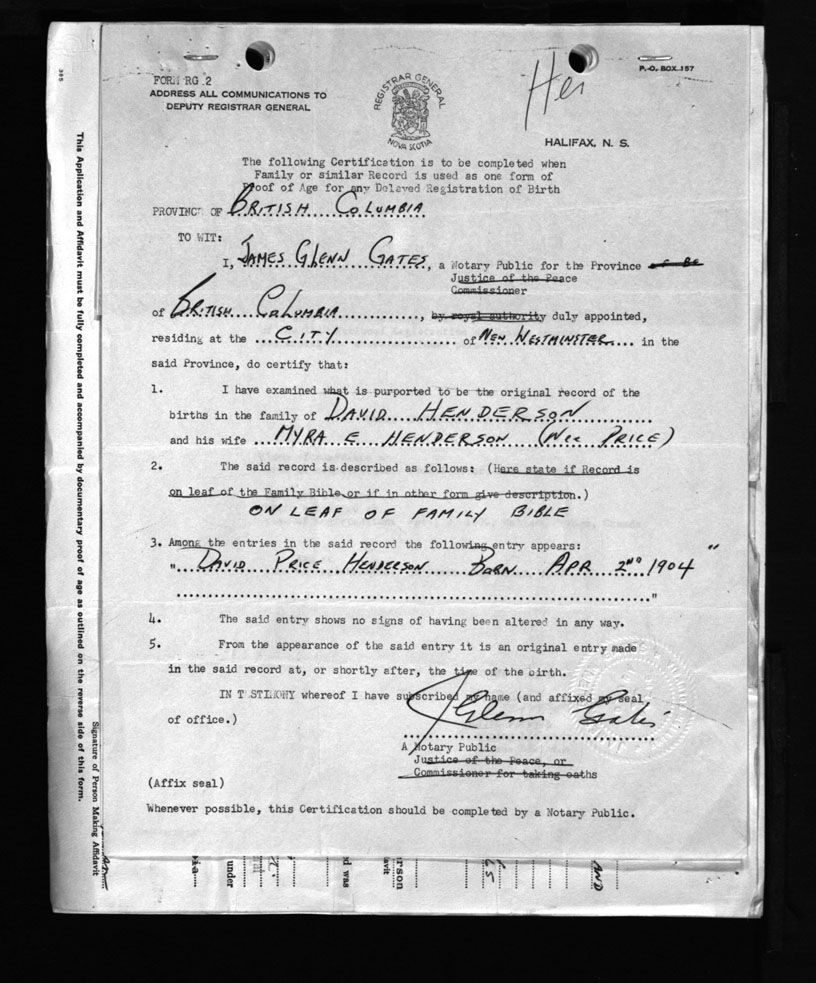 FORM RG 2
ADDRESS ALL COMMUNICATIONS TO
DEPUTY REGISTRAR GENERAL
REGISTRAR GENERAL
NOVA SCOTIA
P. O. BOX 157
HALIFAX, N. S.
The following Certification is to be completed when
Family or similar Record is used as one form of
Proof of Age for any Delayed Registration of Birth
PROVINCE OF BRITISH COLUMBIA
TO WIT:
I, JAMES GLENN GATES, a Notary Public for the Province
Justice of the Peace
Commissioner
of BRITISH COLUMBIA, by royal authority duly appointed,
residing at the CITY of NEW WESTMINSTER in the
said Province, do certify that:
1. I have examined what is purported to be the original record of the
births in the family of DAVID HENDERSON
and his wife MYRA E HENDERSON (Nee PRICE)
2. The said record is described as follows: (Here state if Record is
on leaf of the Family Bible or if in other form give description.)
ON LEAF OF FAMILY BIBLE
3. Among the entries in the said record the following entry appears:
"DAVID PRICE HENDERSON BORN APR 2ND 1904"
"
4. The said entry shows no signs of having been altered in any way.
5. From the appearance of the said entry it is an original entry made
in the said record at, or shortly after, the time of the birth.
IN TESTIMONY whereof I have subscribed my name (and affixed my seal
of office.)
J Glenn Gates
A Notary Public
Justice of the Peace, or
Commissioner for taking oaths
(Affix seal)
Whenever possible, this Certification should be completed by a Notary Public.
This Application and Affidavit must be fully completed and accompanied by documentary proof of age as outlined on the reverse side of this form.
Signature of Person Making Affidavit
under
was
AND